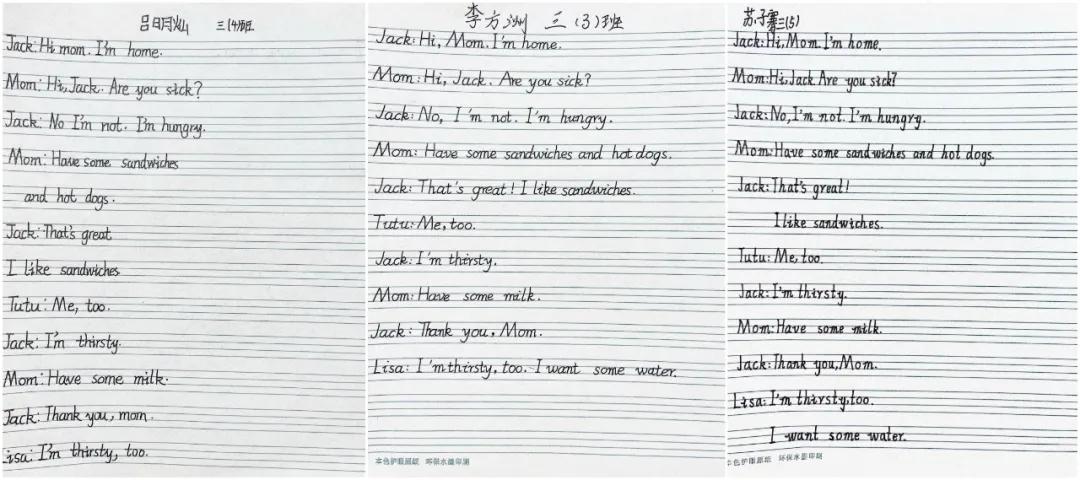 吕日月灿 三(4)班
Jack: Hi mom. I'm home.
Mom: Hi, Jack. Are you sick?
Jack: No I'm not. I'm hungry.
Mom: Have some sandwiches
and hot dogs.
Jack: That's great
I like sandwiches
Tutu: Me, too.
Jack: I'm thirsty.
Mom: Have some milk.
Jack: Thank you, mom.
Lisa: I'm thirsty, too.
李方洲 三(3)班
Jack: Hi, Mom. I'm home.
Mom: Hi, Jack. Are you sick?
Jack: No, I'm not. I'm hungry.
Mom: Have some sandwiches and hot dogs.
Jack: That's great! I like sandwiches.
Tutu: Me, too.
Jack: I'm thirsty.
Mom: Have some milk.
Jack: Thank you, Mom.
Lisa: I'm thirsty, too. I want some water.
本色护眼纸 环保水墨印刷
苏子骞 三(5)
Jack: Hi, Mom. I'm home.
Mom: Hi, Jack. Are you sick?
Jack: No, I'm not. I'm hungry.
Mom: Have some sandwiches and hot dogs.
Jack: That's great!
I like sandwiches.
Tutu: Me, too.
Jack: I'm thirsty.
Mom: Have some milk.
Jack: Thank you, Mom.
Lisa: I'm thirsty, too.
I want some water.
本色护眼纸 环保水墨印刷